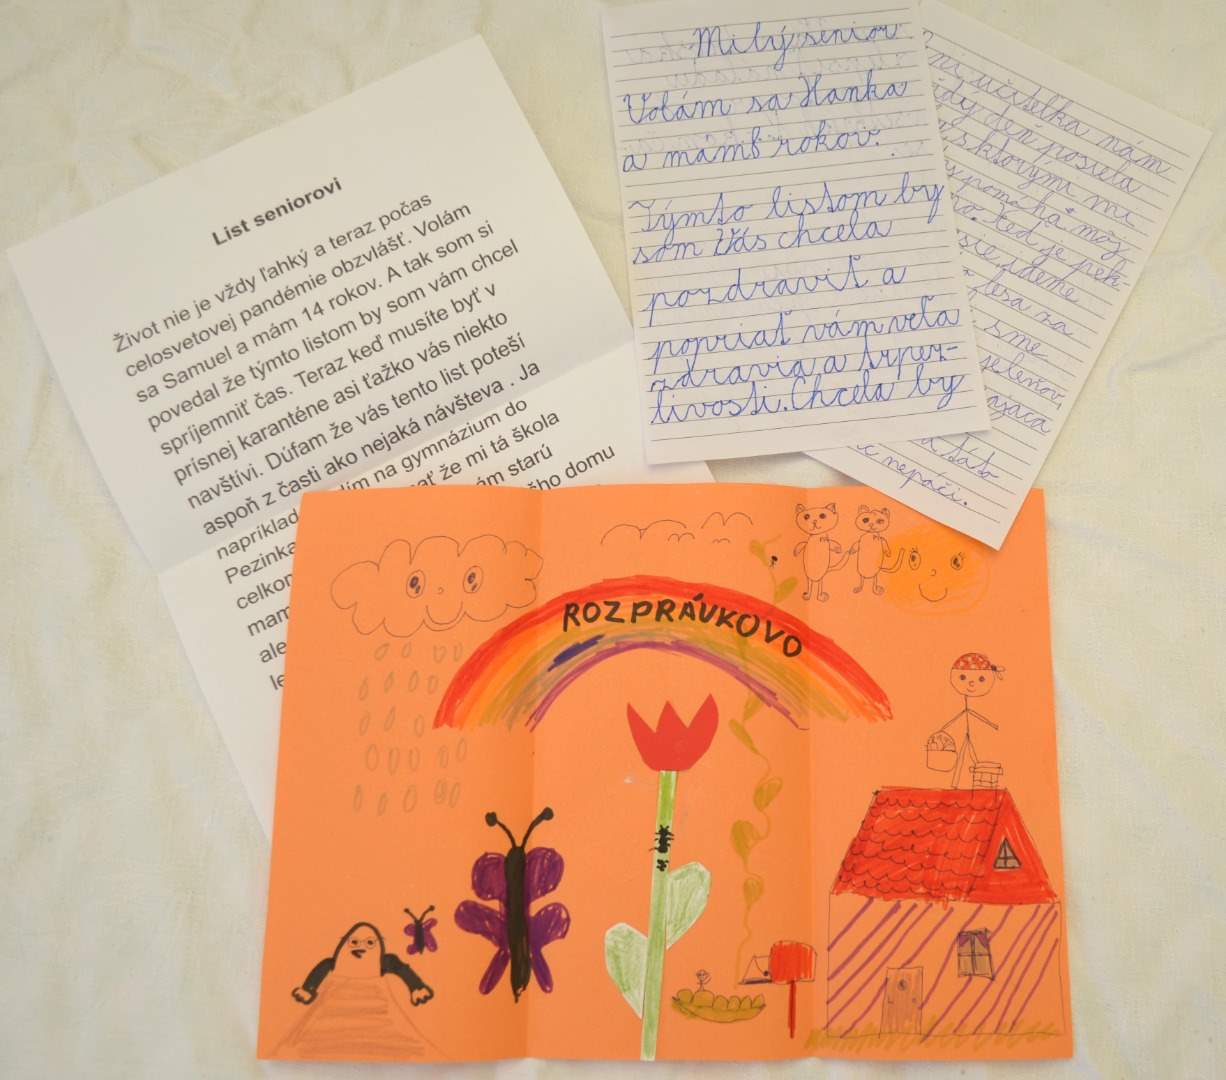 List seniorovi
Život nie je vždy ľahký a teraz počas
celosvetovej pandémie obzvlášť. Volám
sa Samuel a mám 14 rokov. A tak som si
povedal že týmto listom by som vám chcel
spríjemniť čas. Teraz keď musíte byť v
prísnej karanténe asi ťažko vás niekto
navštívi. Dúfam že vás tento list poteší
aspoň z časti ako nejaká návšteva . Ja
napríklad na gymnázium do
Pezinka že mi tá škola
starú
domu
ale
Milý senior
Volám sa Hanka
a mám 8 rokov.
Týmto listom by
som Vás chcela
pozdraviť a
popriať vám veľa
zdravia a trpez-
livosti. Chcela by
učiteľka nám
deň posiela
s ktorými mi
pomáha môj
Keď je pek-
ideme
lesa za
sme
jeleňov,
táto
nepáči.
ROZPRÁVKOVO